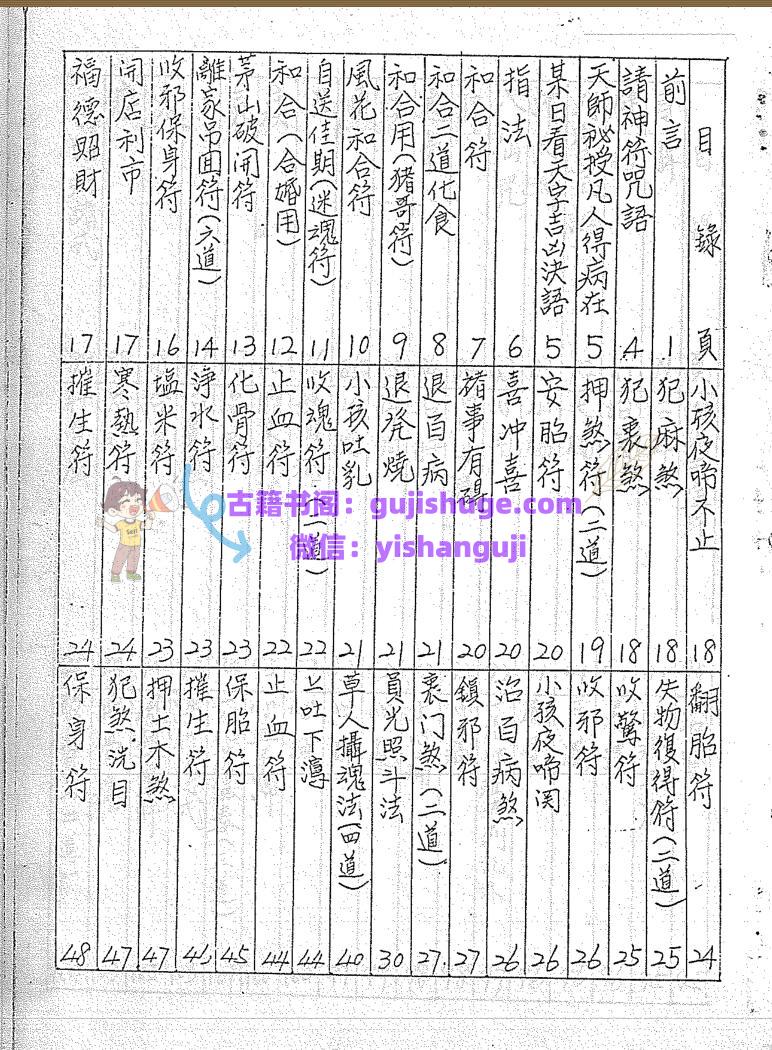 目錄 頁
前言 1
請神符咒語 4
天師祕授凡人得病在 5
某日看天字吉凶決語 5
指法 6
和合符 7
和合二道化食 8
和合用(猪哥符) 9
風花和合符 10
自送佳期(迷魂符) 11
和合(合婚用) 12
茅山破開符 13
離家吊回符(六道) 14
收邪保身符 16
開店利市 17
福德照財 17
小孩夜啼不止 18
犯麻煞 18
犯喪煞 18
押煞符(二道) 19
安胎符 20
喜冲喜 20
諸事有碍 20
退百病 21
退発燒 21
小孩吐乳 21
收魂符(二道) 22
止血符 22
化骨符 23
淨水符 23
塩米符 23
寒熱符 24
摧生符 24
翻胎符 24
失物復得符(三道) 25
收驚符 25
收邪符 26
小孩夜啼関 26
治百病煞 26
鎖邪符 27
喪门煞(二道) 27
員光照斗法 30
草人攝魂法(四道) 40
上吐下瀉 44
止血符 44
保胎符 45
摧生符 46
押土木煞 47
犯煞洗目 47
保身符 48
古籍书阁：gujishuge.com
微信：yishanguji